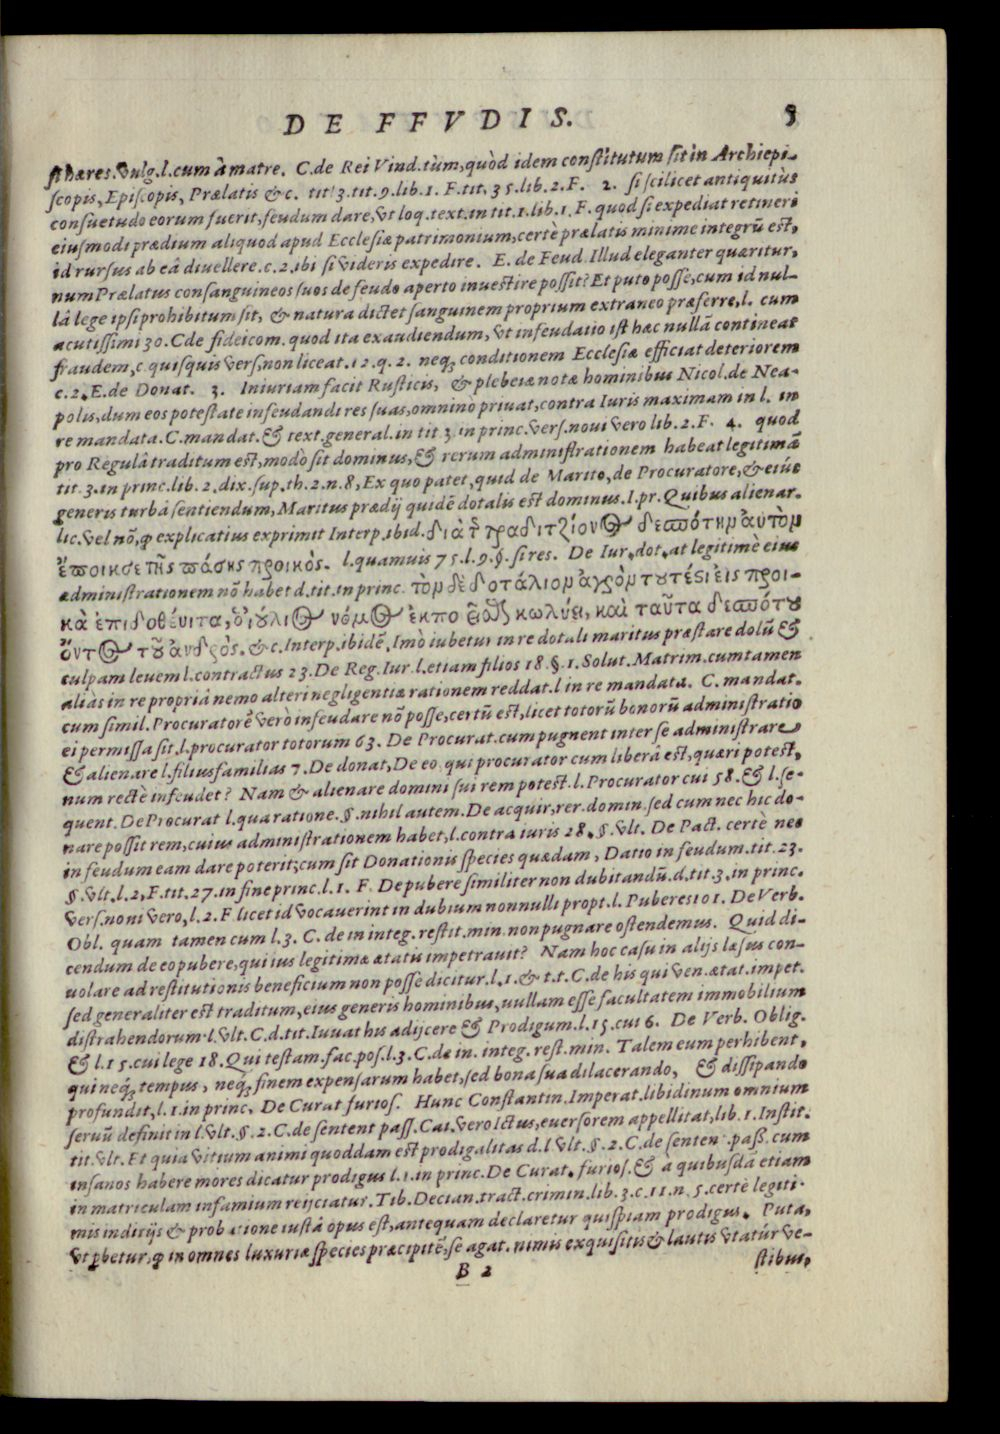 DE FFVDIS.
sit hæres. vulg. l. cum à matre. C. de Rei Vind. tùm, quòd idem constitutum sit in Archiepi-
scopis, Episcopis, Prælatis &c. tit. 3. tit. 9. lib. 1. F. tit. 35. lib. 2. F. 2. si scilicet antiquitùs
consuetudo eorum fuerit, feudum dare, vt loq. text. in tit. 1. lib. 1. F. quod si expediat retineri
eiusmodi prædium aliquod apud Ecclesiæ patrimonium, certè prælatis minime integrũ est,
id rursus ab eâ diuellere. c. 2. ibi si videris expedire. E. de Feud. Illud eleganter quæritur,
num Prælatus consanguineos suos de feudo aperto inuestire possit? Et puto posse, cum id nul-
lâ lege ipsi prohibitum sit, & natura dictet sanguinem proprium extraneo præferre, l. cum
acutissimi 30. C de fideicom. quod ita exaudiendum, vt infeudatio ist hæc nullã contineat
fraudem, c. quisquis vers, non liceat. 12. q. 2. neqȝ conditionem Ecclesiæ efficiat deteriorem
c. 2. E. de Donat. 3. Iniuriam facit Rusticis, & plebeiæ notæ hominibus Nicol. de Nea-
polis, dum eos potestate infeudandi res suas, omninò priuat, contra Iuris maximam in l. in
re mandata. C. mandat. & text. general. in tit 3. in princ. vers. noui vero lib. 2. F. 4. quod
pro Regulâ traditum est, modò sit dominus, & rerum administrationem habeat legitimã
tit. 3. in princ. lib. 2. dix. sup. th. 2. n. 8, Ex quo patet, quid de Marito, de Procuratore, & eiúˢ
generis turbâ sentiendum, Maritus prædij quidẽ dotalis est dominus. I. pr. Quibus alienar.
lic. vel nõ, φ explicatius exprimit Interp. ibid. διὰ τ̃ τραδιτζίον Θ δεσπότημ αὐτὸμ
ἔποικσε τῆς πάσης προικός. l. quamuis 75. l. 9. §. si res. De Iur. dot. at legitimè eius
administrationem nõ habet d. tit. in princ. τὸμ δὲ δοτάλιομ ἀγρὸμ τουτέστι εἰς προι-
κὰ ἐπιδοθέντα, ὁ ἰούλιος νόμος ἐκποιεῖσθαι κωλύει, καὶ ταῦτα δεσπότου
ὄντος τοῦ ἀνδρός. & c. Interp. ibidẽ. Imò iubetur in re dotali maritus præstare dolũ &
culpam leuem l. contractus 23. De Reg. Iur. l. etiam filios 18. §. 1. Solut. Matrim. cum tamen
aliàs in re propriâ nemo alteri negligentiæ rationem reddat. l in re mandata. C. mandat.
cum simil. Procuratorẽ verò infeudare nõ posse, certũ est, licet totorũ bonorũ administratio
ei permissa sit, l. procurator totorum 63. De Procurat. cum pugnent inter se administrare,
& alienare l. filiusfamilias 7. De donat, De eo qui procurator cum liberâ est, quæri potest,
num rectè infeudet? Nam & alienare domini sui rem potest. l. Procurator cui 58. & l. se-
quent. De Procurat l. qua ratione. §. nihil autem. De acquir, rer. domin. sed cum nec hic do-
nare possit rem, cuius administrationem habet, l. contra iuris 28. §. vlt. De Pact. certè nec
in feudum eam dare poterit; cum sit Donationis species quædam, Datio in feudum. tit. 23.
§. vlt. l. 2, F. tit. 27. in fine princ. l. 1. F. De pubere similiter non dubitandũ. d. tit. 3. in princ.
vers. noni vero, l. 2. F. licet id vocauerint in dubium nonnulli propt. l. Puberes 101. De Verb.
Obl. quam tamen cum l. 3. C. de in integ. restit. min. non pugnare ostendemus. Quid di-
cendum de eo pubere, qui ius legitimæ ætatis impetrauit? Nam hoc casu in alijs læsus con-
uolare ad restitutionis beneficium non posse dicitur. l. 1. & t. t. C. de his qui ven. ætat. impet.
sed generaliter est traditum, eius generis hominibus, nullam esse facultatem immobilium
distrahendorum. l. vlt. C. d. tit. Iuuat his adijcere & Prodigum. l. 15. cui 6. De Verb. Oblig.
& l. 15. cui lege 18. Qui testam. fac. pos. l. 3. C. de in. integ. rest. min. Talem eum perhibent,
qui neqȝ tempus, neqȝ finem expensarum habet, sed bona sua dilacerando, & dissipando
profundit, l. 1. in princ. De Curat furios. Hunc Constantin. Imperat. libidinum omnium
seruũ definit in l. vlt. §. 2. C. de sentent pass. Cai. vero Ictus, euersorem appellitat, lib. 1. Instit.
tit. vlt. Et quia vitium animi quoddam est prodigalitas d. l vlt. §. 2. C. de senten. paß. cum
insanos habere mores dicatur prodigus l. 1. in princ. De Curat. furios. & a quibusdã etiam
in matriculam infamium reijciatur. Tib. Decian. tract. crimin. lib. 3. c. 11. n. 5. certè legiti-
mis indicijs & probatione iustâ opus est, antequam declaretur quispiam prodigus. Puta,
vt ꝑbetur, φ in omnes luxuriæ species præcipitẽ, se agat. nimis exquisitis & lautis vtatúr ve-
stibus,
B 2